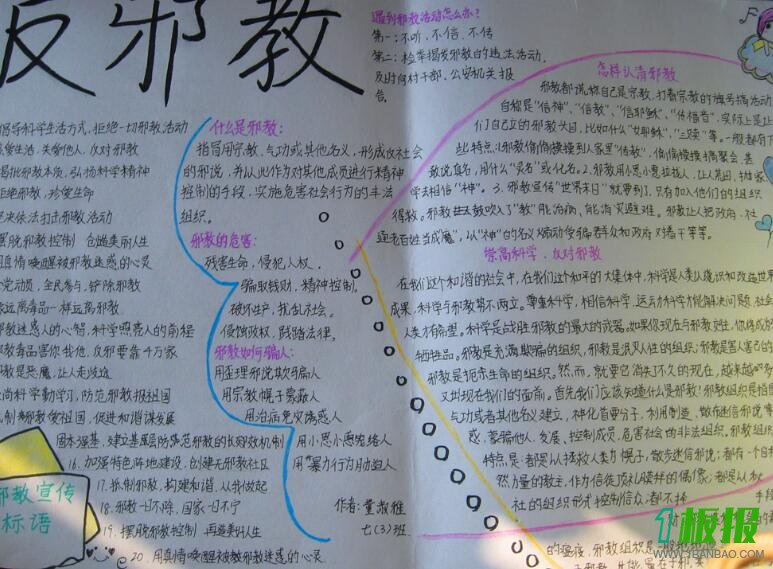 反邪教
倡导科学生活方式,拒绝一切邪教活动
爱生活、关爱他人、反对邪教
揭批邪教本质,弘扬科学精神
拒绝邪教,珍爱生命
坚决依法打击邪教活动
摆脱邪教控制 创造美丽人生
用真情唤醒被邪教迷惑的心灵
全党动员、全民参与、铲除邪教
像远离毒品一样远离邪教
邪教迷惑人的心智,科学照亮人的前程
邪教毒品害你我他,反邪靠千万家
邪教是恶魔,让人走歧途
崇尚科学勤学习,防范邪教报祖国
抵制邪教爱祖国,促进和谐谋发展
固本强基,建立基层防范邪教的长效机制
16、加强特色阵地建设,创建无邪教社区
17、抵制邪教,构建和谐,从我做起
18、邪教一日不除,国家一日不宁
19、摆脱邪教控制 再造美好人生
20、用真情唤醒被邪教迷惑的心灵
邪教宣传
标语
什么是邪教:
指冒用宗教、气功或其他名义,形成反社会
的邪说,并以此作为对其他成员进行精神
控制的手段,实施危害社会行为的非法
组织。
邪教的危害:
残害生命,侵犯人权。
骗取钱财,精神控制,
破坏生产,扰乱社会。
侵蚀政权,践踏法律。
邪教如何骗人:
用歪理邪说欺骗人
用宗教幌子蒙蔽人
用治病免灾诱惑人
用小恩小惠笼络人
用暴力行为胁迫人
作者:董淑雅
七(3)班.
遇到邪教活动怎么办?
第一:不听、不信、不传
第二:检举揭发邪教的违法活动,
及时向村干部、公安机关报
告。
怎样认清邪教
邪教都谎称自己是宗教,打着宗教的旗号搞活动
自称是“信神”、“信教”、“信耶稣”、
们自己立的邪教头目,比如什么“女耶稣”、“三赎”等。一般都有
些特点:1.邪教偷偷摸摸到人家里“传教”,偷偷摸摸搞聚会,甚
敢说真名,用什么“灵名”或化名。2.邪教用小恩小惠拉拢人,让人
学去相信“神”。3.邪教宣传“世界末日”就要到了,只有加入他们的组织
得救。邪教吹嘘入了“教”能治病、能消灾避难。邪教让人把政府、社
老百姓当成“魔”,以“神”的名义煽动受骗群众和政府对着干等等。
崇尚科学、反对邪教
在我们这个和谐的社会中,在我们这个和平的大集体中,科学是人类认识和改造世界
成果,科学与邪教势不两立。尊重科学,相信科学,运用科学才能解决问题,社会
人类才有希望。科学是战胜邪教的最大的武器。如果你现在与邪教
牺牲品。邪教是充满欺骗的组织,邪教是泯灭人性的组织;邪教是害人害己的
邪教是扼杀生命的组织。然而,就要它消失了不久的现在,越来越
又出现在我们的面前。首先我们应该知道什么是邪教!邪教组织是指冒
气功或者其他名义建立,神化首要分子,利用制造、散布迷信邪说
惑、蒙骗他人、发展、控制成员、危害社会的非法组织。邪教组织
特点是:都是以拯救人类为幌子,散步迷信邪说;都有一个自
然力量的教主,作为信徒顶礼膜拜的偶像;都是以
社的组织形式控制信众;都不择手段
的瘟疫,邪教组织是
1板报
WWW.1BANBAO.COM